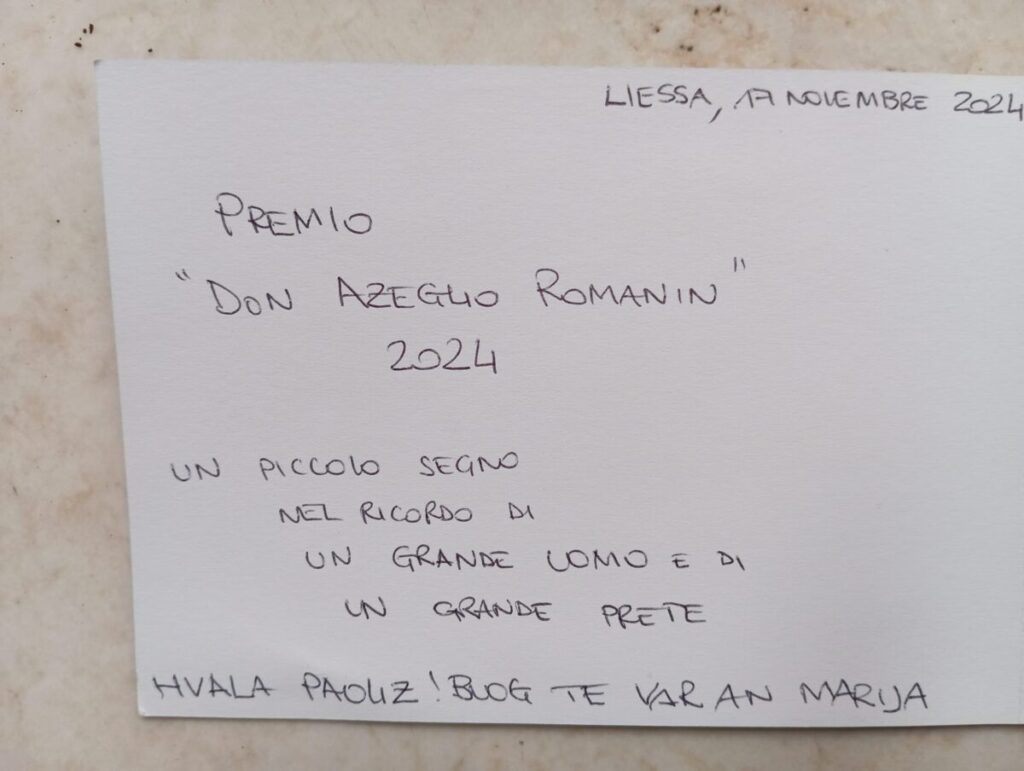 LIESSA, 17 NOVEMBRE 2024
PREMIO
"DON AZEGLIO ROMANIN"
2024
UN PICCOLO SEGNO
NEL RICORDO DI
UN GRANDE UOMO E DI
UN GRANDE PRETE
HVALA PAOLIZ! BUOG TE VAR AN MARIJA